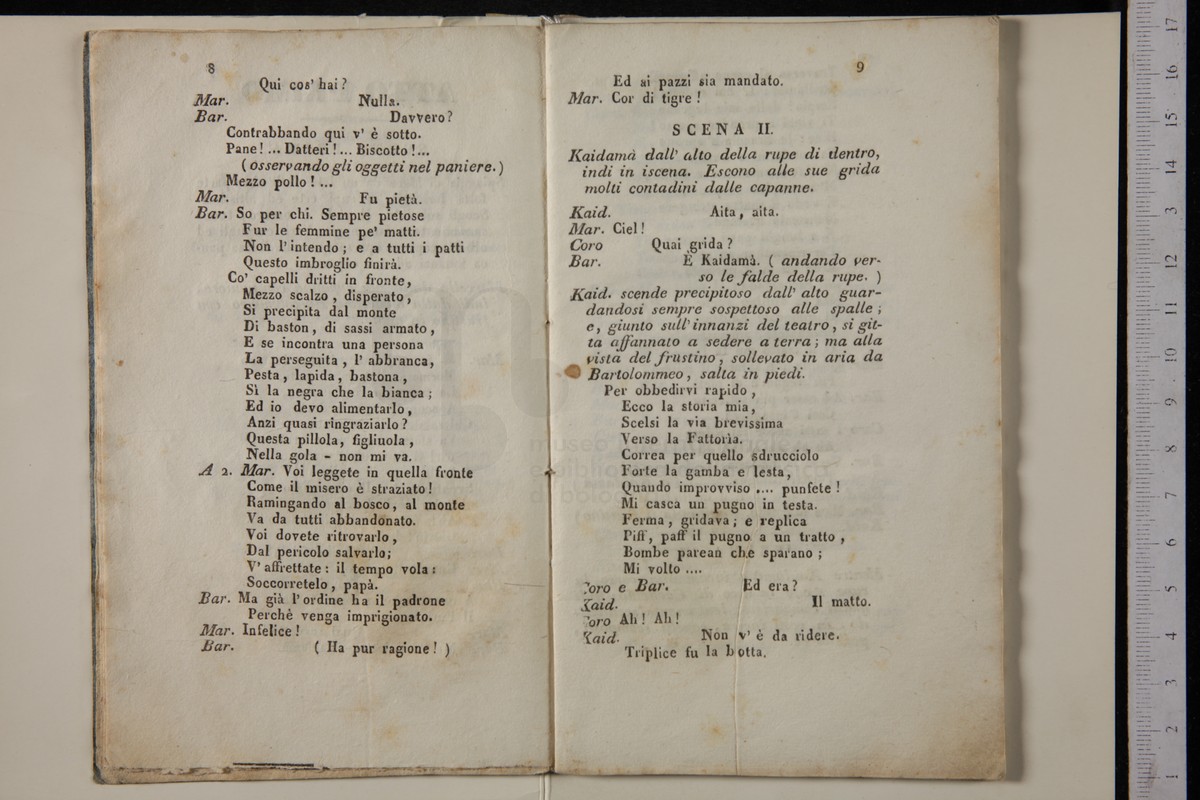 8
Qui cos' hai?
Mar. Nulla.
Bar. Davvero?
Contrabbando qui v' è sotto.
Pane! ... Datteri!... Biscotto!...
( osservando gli oggetti nel paniere. )
Mezzo pollo! ...
Mar. Fu pietà.
Bar. So per chi. Sempre pietose
Fur le femmine pe' matti.
Non l' intendo; e a tutti i patti
Questo imbroglio finirà.
Co' capelli dritti in fronte,
Mezzo scalzo, disperato,
Si precipita dal monte
Di baston, di sassi armato,
E se incontra una persona
La perseguita, l' abbranca,
Pesta, lapida, bastona,
Sì la negra che la bianca;
Ed io devo alimentarlo,
Anzi quasi ringraziarlo?
Questa pillola, figliuola,
Nella gola - non mi va.
A 2. Mar. Voi leggete in quella fronte
Come il misero è straziato!
Ramingando al bosco, al monte
Va da tutti abbandonato.
Voi dovete ritrovarlo,
Dal pericolo salvarlo;
V' affrettate: il tempo vola:
Soccorretelo, papà.
Bar. Ma già l' ordine ha il padrone
Perchè venga imprigionato.
Mar. Infelice!
Bar. ( Ha pur ragione! )
9
Ed ai pazzi sia mandato.
Mar. Cor di tigre!
SCENA II.
Kaidamà dall' alto della rupe di dentro,
indi in iscena. Escono alle sue grida
molti contadini dalle capanne.
Kaid. Aita, aita.
Mar. Ciel!
Coro Quai grida?
Bar. È Kaidamà. ( andando ver-
so le falde della rupe. )
Kaid. scende precipitoso dall' alto guar-
dandosi sempre sospettoso alle spalle;
e, giunto sull' innanzi del teatro, si git-
ta affannato a sedere a terra; ma alla
vista del frustino, sollevato in aria da
Bartolommeo, salta in piedi.
Per obbedirvi rapido,
Ecco la storia mia,
Scelsi la via brevissima
Verso la Fattorìa.
Correa per quello sdrucciolo
Forte la gamba e lesta,
Quando improvviso .... punfete!
Mi casca un pugno in testa.
Ferma, gridava; e replica
Piff, paff il pugno a un tratto,
Bombe parean che sparano;
Mi volto ....
Coro e Bar. Ed era?
Kaid. Il matto.
Coro Ah! Ah!
Kaid. Non v' è da ridere.
Triplice fu la botta.